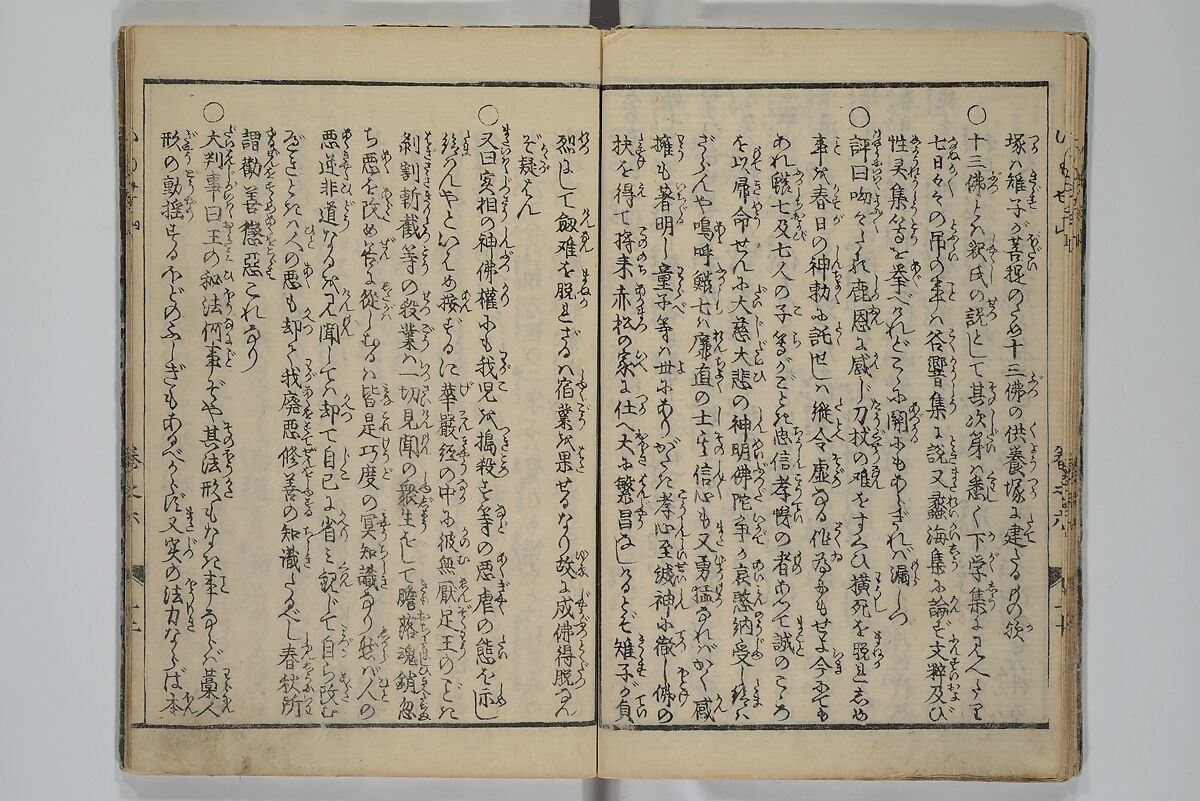 塚ハ雉子が菩提のため十三佛の供養塚に建たるものか
○十三佛とハ釈氏の説にして其次第ハ悉く下学集に見へたり
七日々々の吊の事ハ谷響集に説又蠡海集に論ず文粋及び
性灵集等を挙べけれどこゝに関にもあらざれバ漏しつ
○評曰呦々たる鹿恩に感じ刀杖の难をすくひ横死を脱れしめ
事を春日の神勅に託せしハ縦令虚なる作なにもせよ今にても
あれ鱶七及七人の子等がごとき忠信孝悌の者あつて誠のこゝろ
を以帰命せんに大慈大悲の神明佛陀争か哀愍納受し給ハ
ざらんや嗚呼鱶七ハ廉直の士にて信心も又勇猛なれバかく感
應も著明し童子等ハ世にありがたき孝心至誠神に徹し佛の
扶を得て将来赤松の家に仕へ大に繁昌なしけるとぞ雉子が貞
烈にして劔难を脱れざるハ宿業を果せるなり故に成佛得脱なん
ぞ疑はん
○又曰实相の神佛權にも我児を搗殺す等の悪虐の態を示し
給んやといへども按ずるに華嚴経の中に彼無厭足王のごとき
剥割斬截等の殺業ハ一切見聞の衆生をして膽落魂銷忽
ち悪を改め善に從しむるハ皆是巧度の冥知識なり然バ人の
悪逆非道なるを見聞してハ却て自己に省ミ観じて自ら改む
べきことをバ人の悪も却て我廃悪修善の知識たるべし春秋所
謂勸善懲惡これなり
○大判事曰王の秘法何事ぞや其法形もなき事ならバ藁人
形の動揺するほどのふしぎもあるべからず又实の法力ならば本